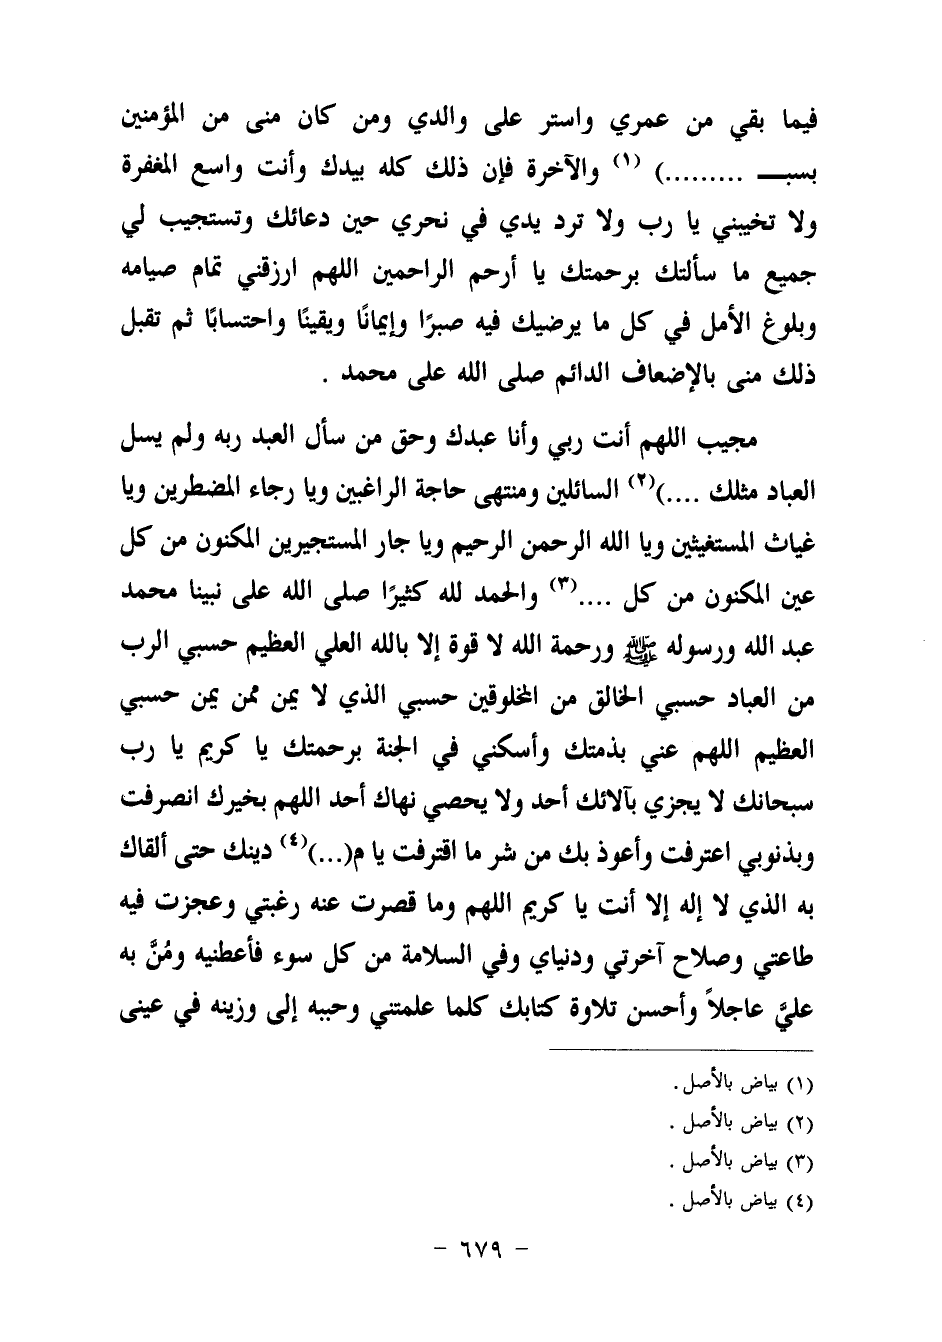 فيما بقي من عمري واستر على والدي ومن كان منى من المؤمنين
بسبـــ .........) (١) والآخرة فإن ذلك كله بيدك وأنت واسع المغفرة
ولا تخيبني يا رب ولا ترد يدي في نحري حين دعائك وتستجيب لي
جميع ما سألتك برحمتك يا أرحم الراحمين اللهم ارزقني تمام صيامه
وبلوغ الأمل في كل ما يرضيك فيه صبرًا وإيمانًا ويقينًا واحتسابًا ثم تقبل
ذلك منى بالإضعاف الدائم صلى الله على محمد .
مجيب اللهم أنت ربي وأنا عبدك وحق من سأل العبد ربه ولم يسل
العباد مثلك ....)(٢) السائلين ومنتهى حاجة الراغبين ويا رجاء المضطرين ويا
غياث المستغيثين ويا الله الرحمن الرحيم ويا جار المستجيرين المكنون من كل
عين المكنون من كل ....(٣) والحمد لله كثيرًا صلى الله على نبينا محمد
عبد الله ورسوله ﷺ ورحمة الله لا قوة إلا بالله العلي العظيم حسبي الرب
من العباد حسبي الخالق من المخلوقين حسبي الذي لا يمن ممن يمن حسبي
العظيم اللهم عني بذمتك وأسكني في الجنة برحمتك يا كريم يا رب
سبحانك لا يجزي بآلائك أحد ولا يحصي نهاك أحد اللهم بخيرك انصرفت
وبذنوبي اعترفت وأعوذ بك من شر ما اقترفت يا م(...)(٤) دينك حتى ألقاك
به الذي لا إله إلا أنت يا كريم اللهم وما قصرت عنه رغبتي وعجزت فيه
طاعتي وصلاح آخرتي ودنياي وفي السلامة من كل سوء فأعطنيه ومُنَّ به
عليَّ عاجلاً وأحسن تلاوة كتابك كلما علمتني وحببه إلى وزينه في عينى
(١) بياض بالأصل .
(٢) بياض بالأصل .
(٣) بياض بالأصل .
(٤) بياض بالأصل .
- ٦٧٩ -